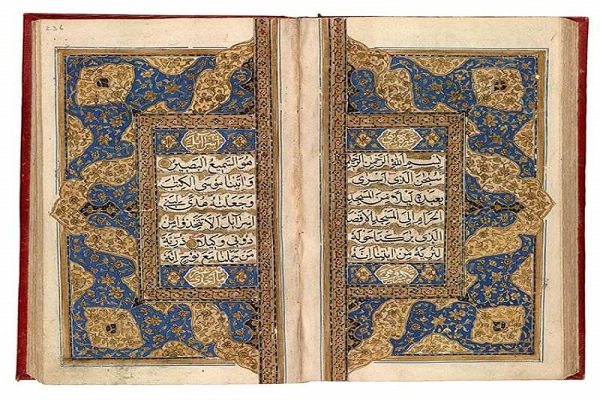 بسم الله الرحمن الرحيم
سبحن الذي اسرى
بعبده ليلا من المسجد
الحرام الى المسجد الاقصا
الذي بركنا حوله
لنريه من ايتنا انه
236
هو السميع البصير
واتينا موسى الكتب
وجعلنه هدى لبني
اسرايل الا تتخذوا من
دوني وكيلا ذرية
من حملنا مع نوح انه